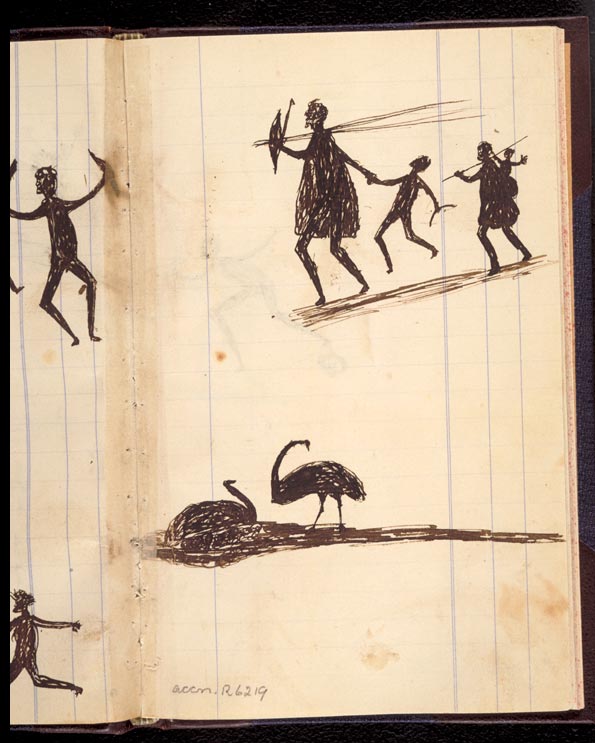 accn. R6219